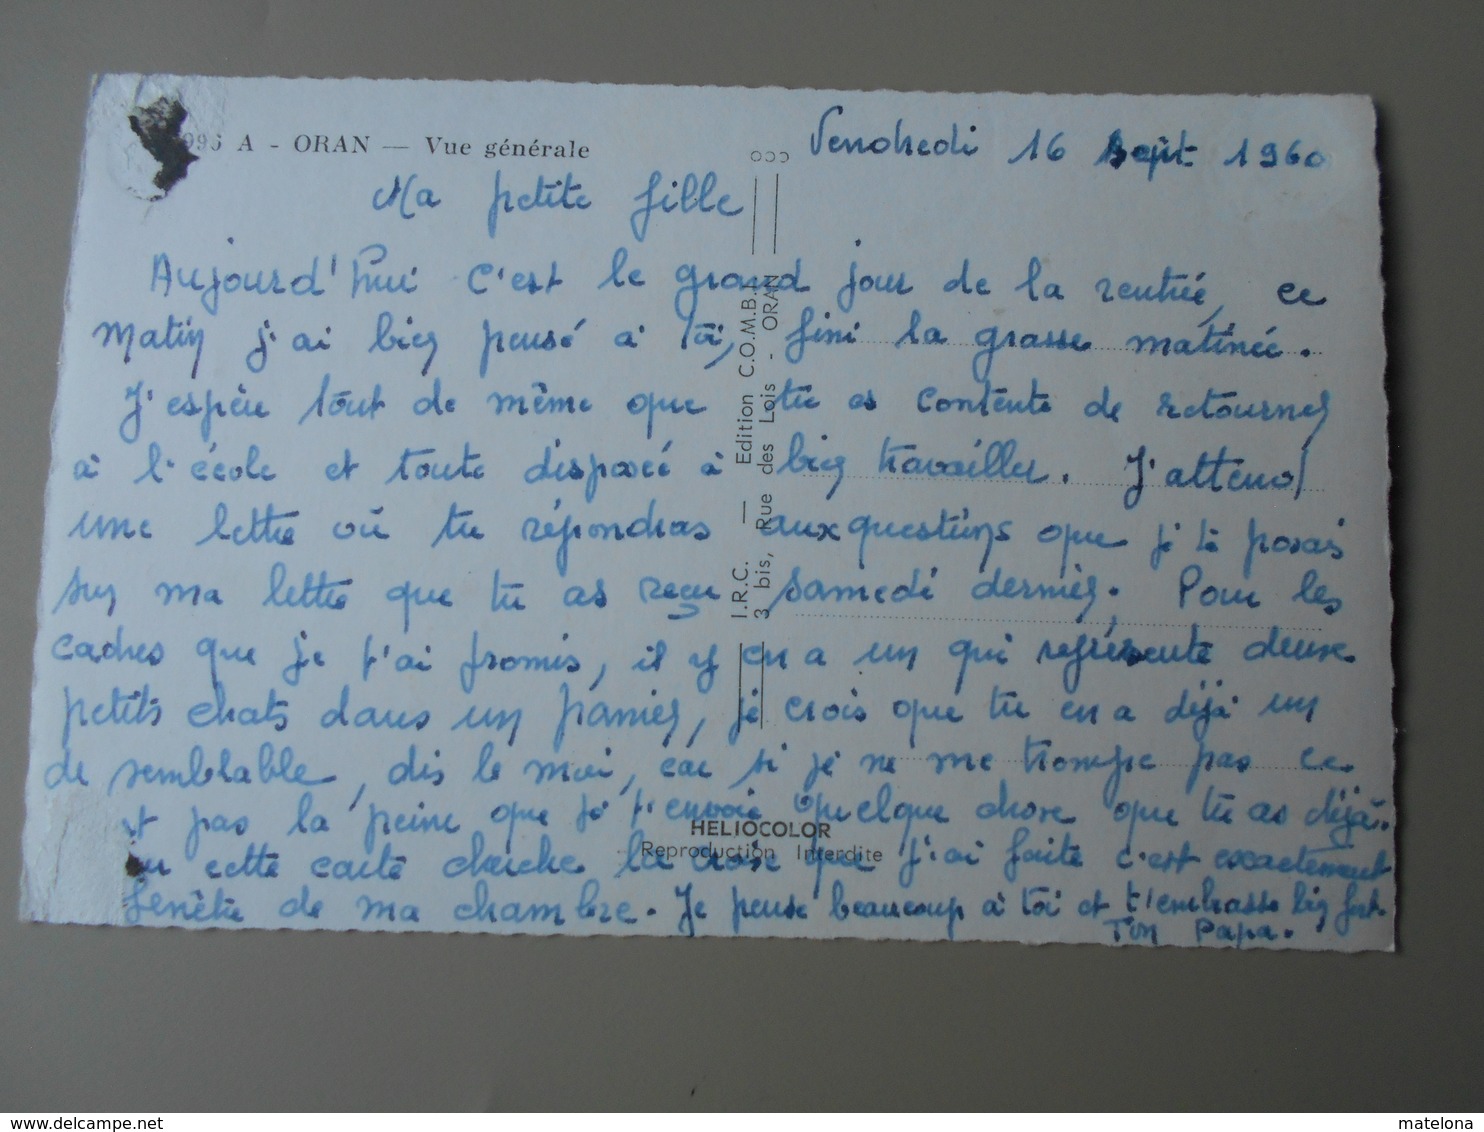 996 A - ORAN — Vue générale
Vendredi 16 Sept 1960
Ma petite fille
Aujourd'hui c'est le grand jour de la rentrée, ce
matin j'ai bien pensé à toi, fini la grasse matinée.
J'espère tout de même que tu es contente de retourner
à l'école et toute disposée à bien travailler. J'attend
une lettre où tu répondras aux questions que je te posais
sur ma lettre que tu as reçu samedi dernier. Pour les
cadres que je t'ai promis, il y en a un qui représente deux
petits chats dans un panier, je crois que tu en a déjà un
de semblable, dis le moi, car si je ne me trompe pas ce
pas la peine que je t'envoie quelque chose que tu as déjà.
cette carte cherche la croix que j'ai faite c'est exactement
fenêtre de ma chambre. Je pense beaucoup à toi et t'embrasse bien fort
Ton Papa.
I.R.C. — Edition C.O.M.B.I.
3 bis, Rue des Lois - ORAN
HELIOCOLOR
Reproduction Interdite
matelona
www.delcampe.net